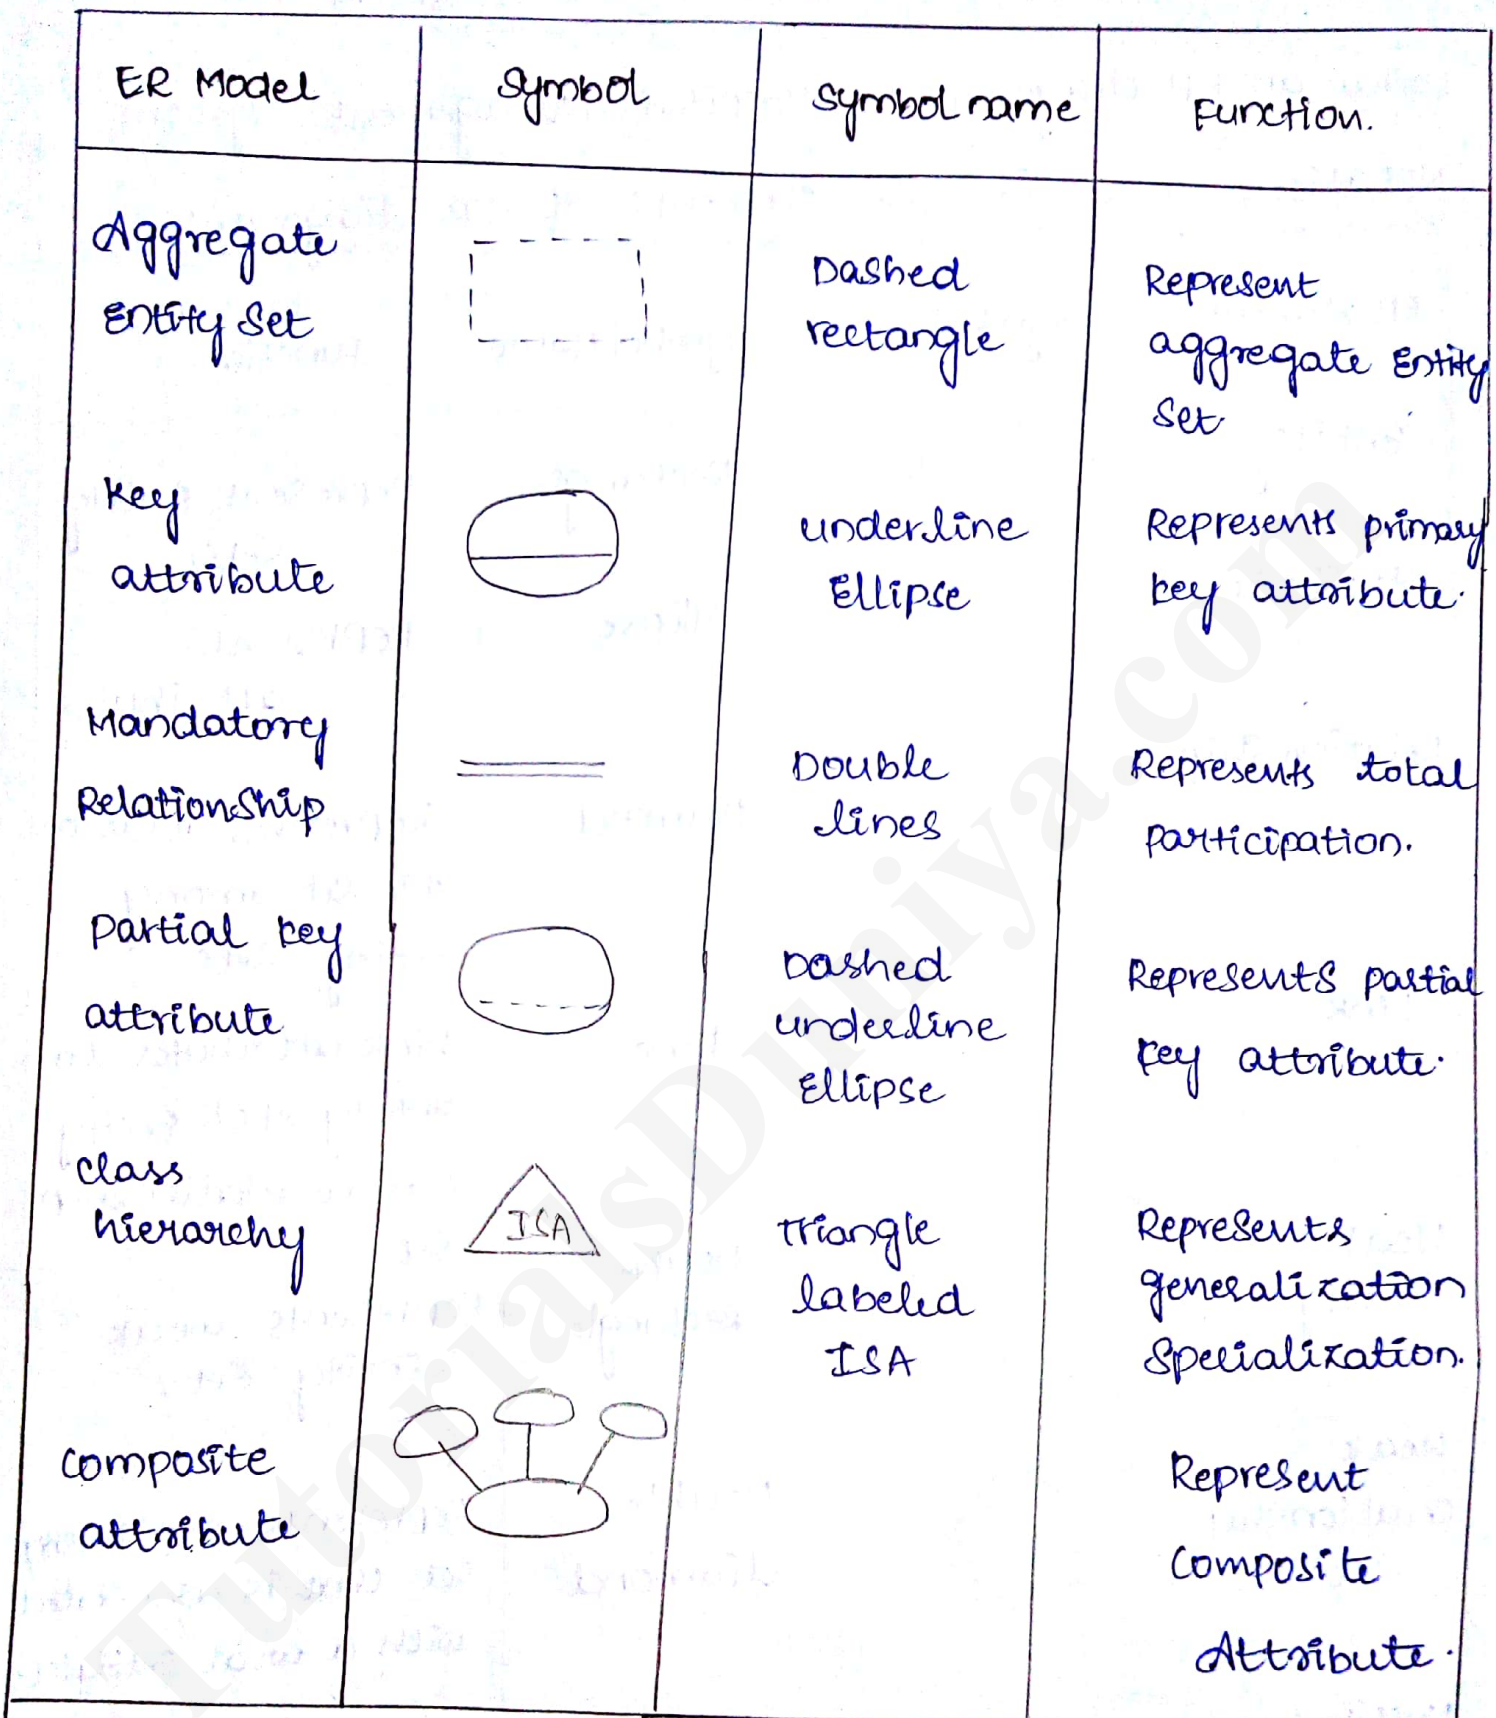 ER Model
Symbol
Symbol name
Function.
Aggregate
Entity Set
Dashed
rectangle
Represent
aggregate Entity
Set.
Key
attribute
underline
Ellipse
Represents primary
key attribute.
Mandatory
Relationship
Double
lines
Represents total
participation.
Partial key
attribute
Dashed
underline
Ellipse
Represents partial
key attribute.
class
hierarchy
ISA
Triangle
labeled
ISA
Represents
generalization
Specialization.
composite
attribute
Represent
Composite
Attribute.
TutorialsDuniya.com